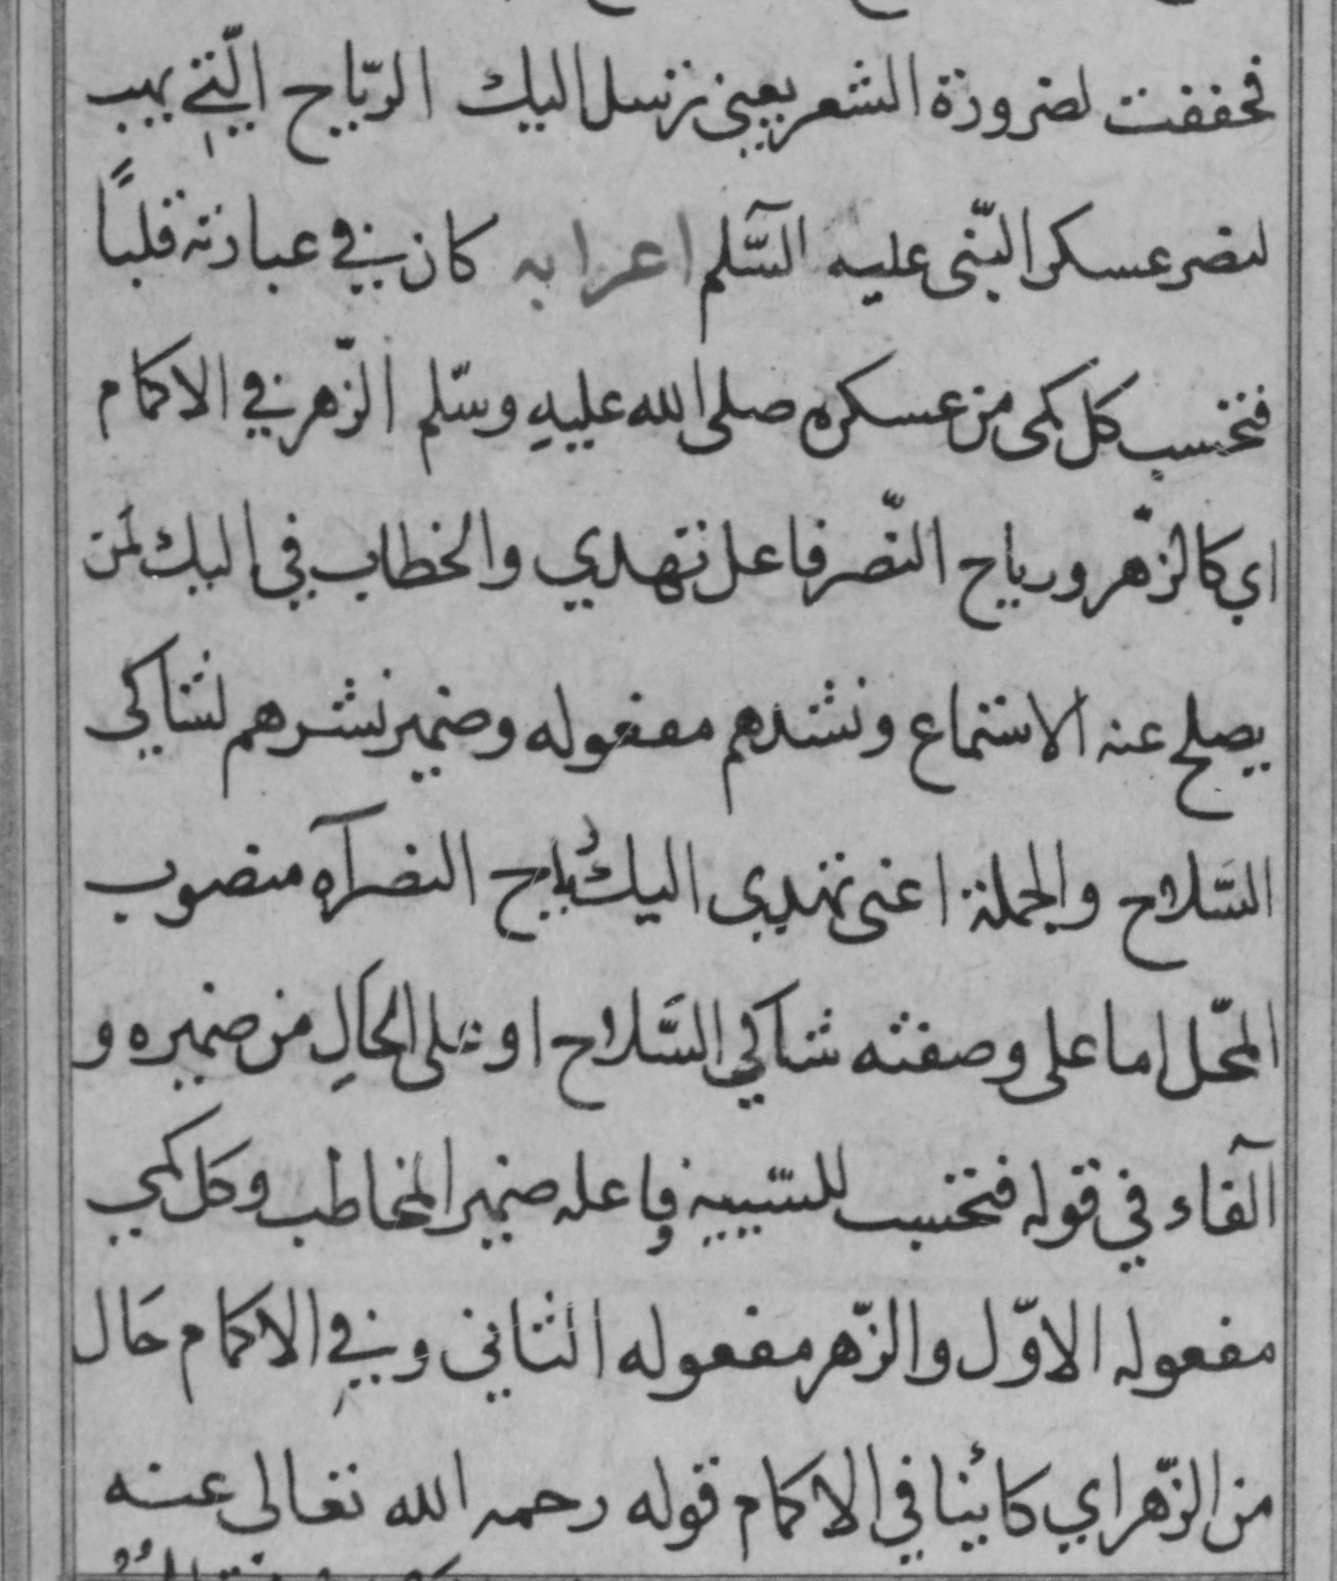 فخففت لضرورة الشعر يعنى ترسل اليك الرّياح الّتي يهب
لنصر عسكر النّبى عليه السّلم اعرابه كان في عبارته قلبًا
فتحسب كل كمى من عسكره صلى الله عليهِ وسّلم الزّهر في الاكمام
اي كالزّهر ورياح النّصر فاعل تهدي والخطاب في اليك لمن
يصلح عنه الاستماع ونشدهم مفعوله وضمير نشرهم لشاكي
السّلاح والجملة اعنى تهدى اليك رياح النصر آه منصوب
المحّل اما على وصفته شاكي السّلاح او على الحالِ من ضميره و
الٓفاء في قوله فتحسب للسّببية وفاعله ضمير المخاطب وكل كمي
مفعوله الاوّل والزّهر مفعوله الثاني وفي الاكمام حَال
من الزّهر اي كائنا في الاكمام قوله رحمه الله تعالى عنه